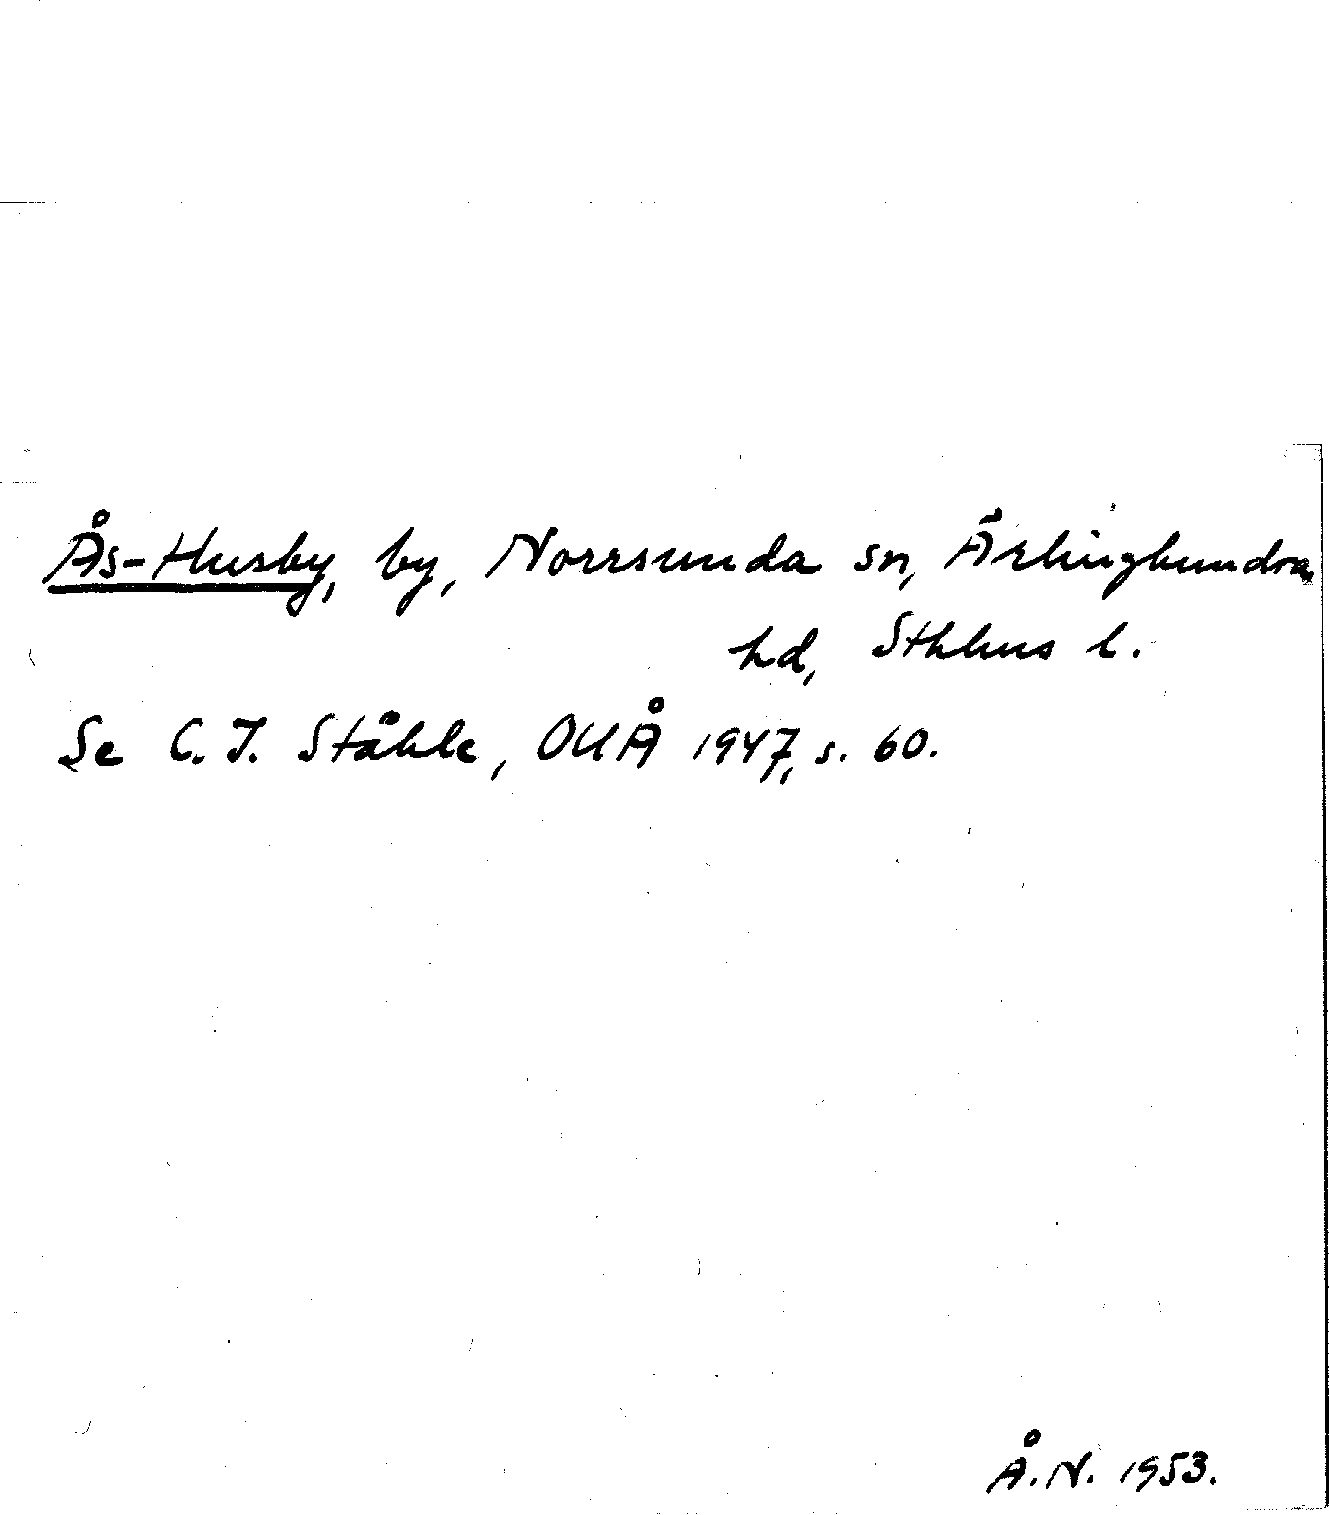 Ås-Husby, by, Norrsunda sn, Ärlinghundra
hd, Sthlms l.
Se C. I. Ståhle, OUÅ 1947, s. 60.
Å. N. 1953.